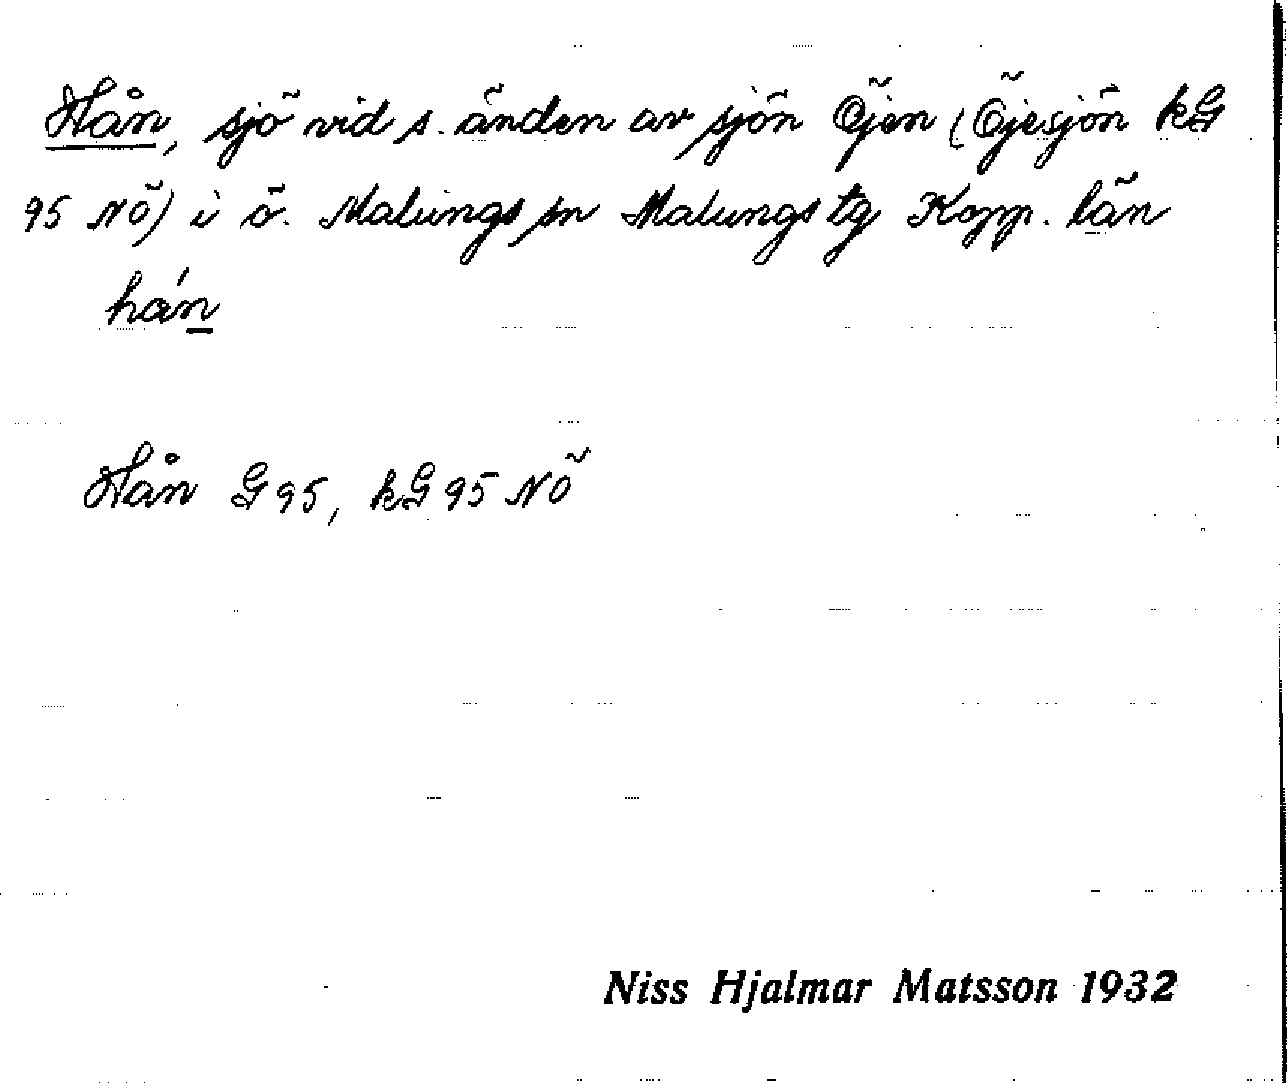 Hån, sjö vid s. änden av sjön Öjen (Öjesjön kG
95 NÖ) i ö. Malungs sn Malungs tg Kopp. län
hán
Hån G 95, kG 95 NÖ
Niss Hjalmar Matsson 1932